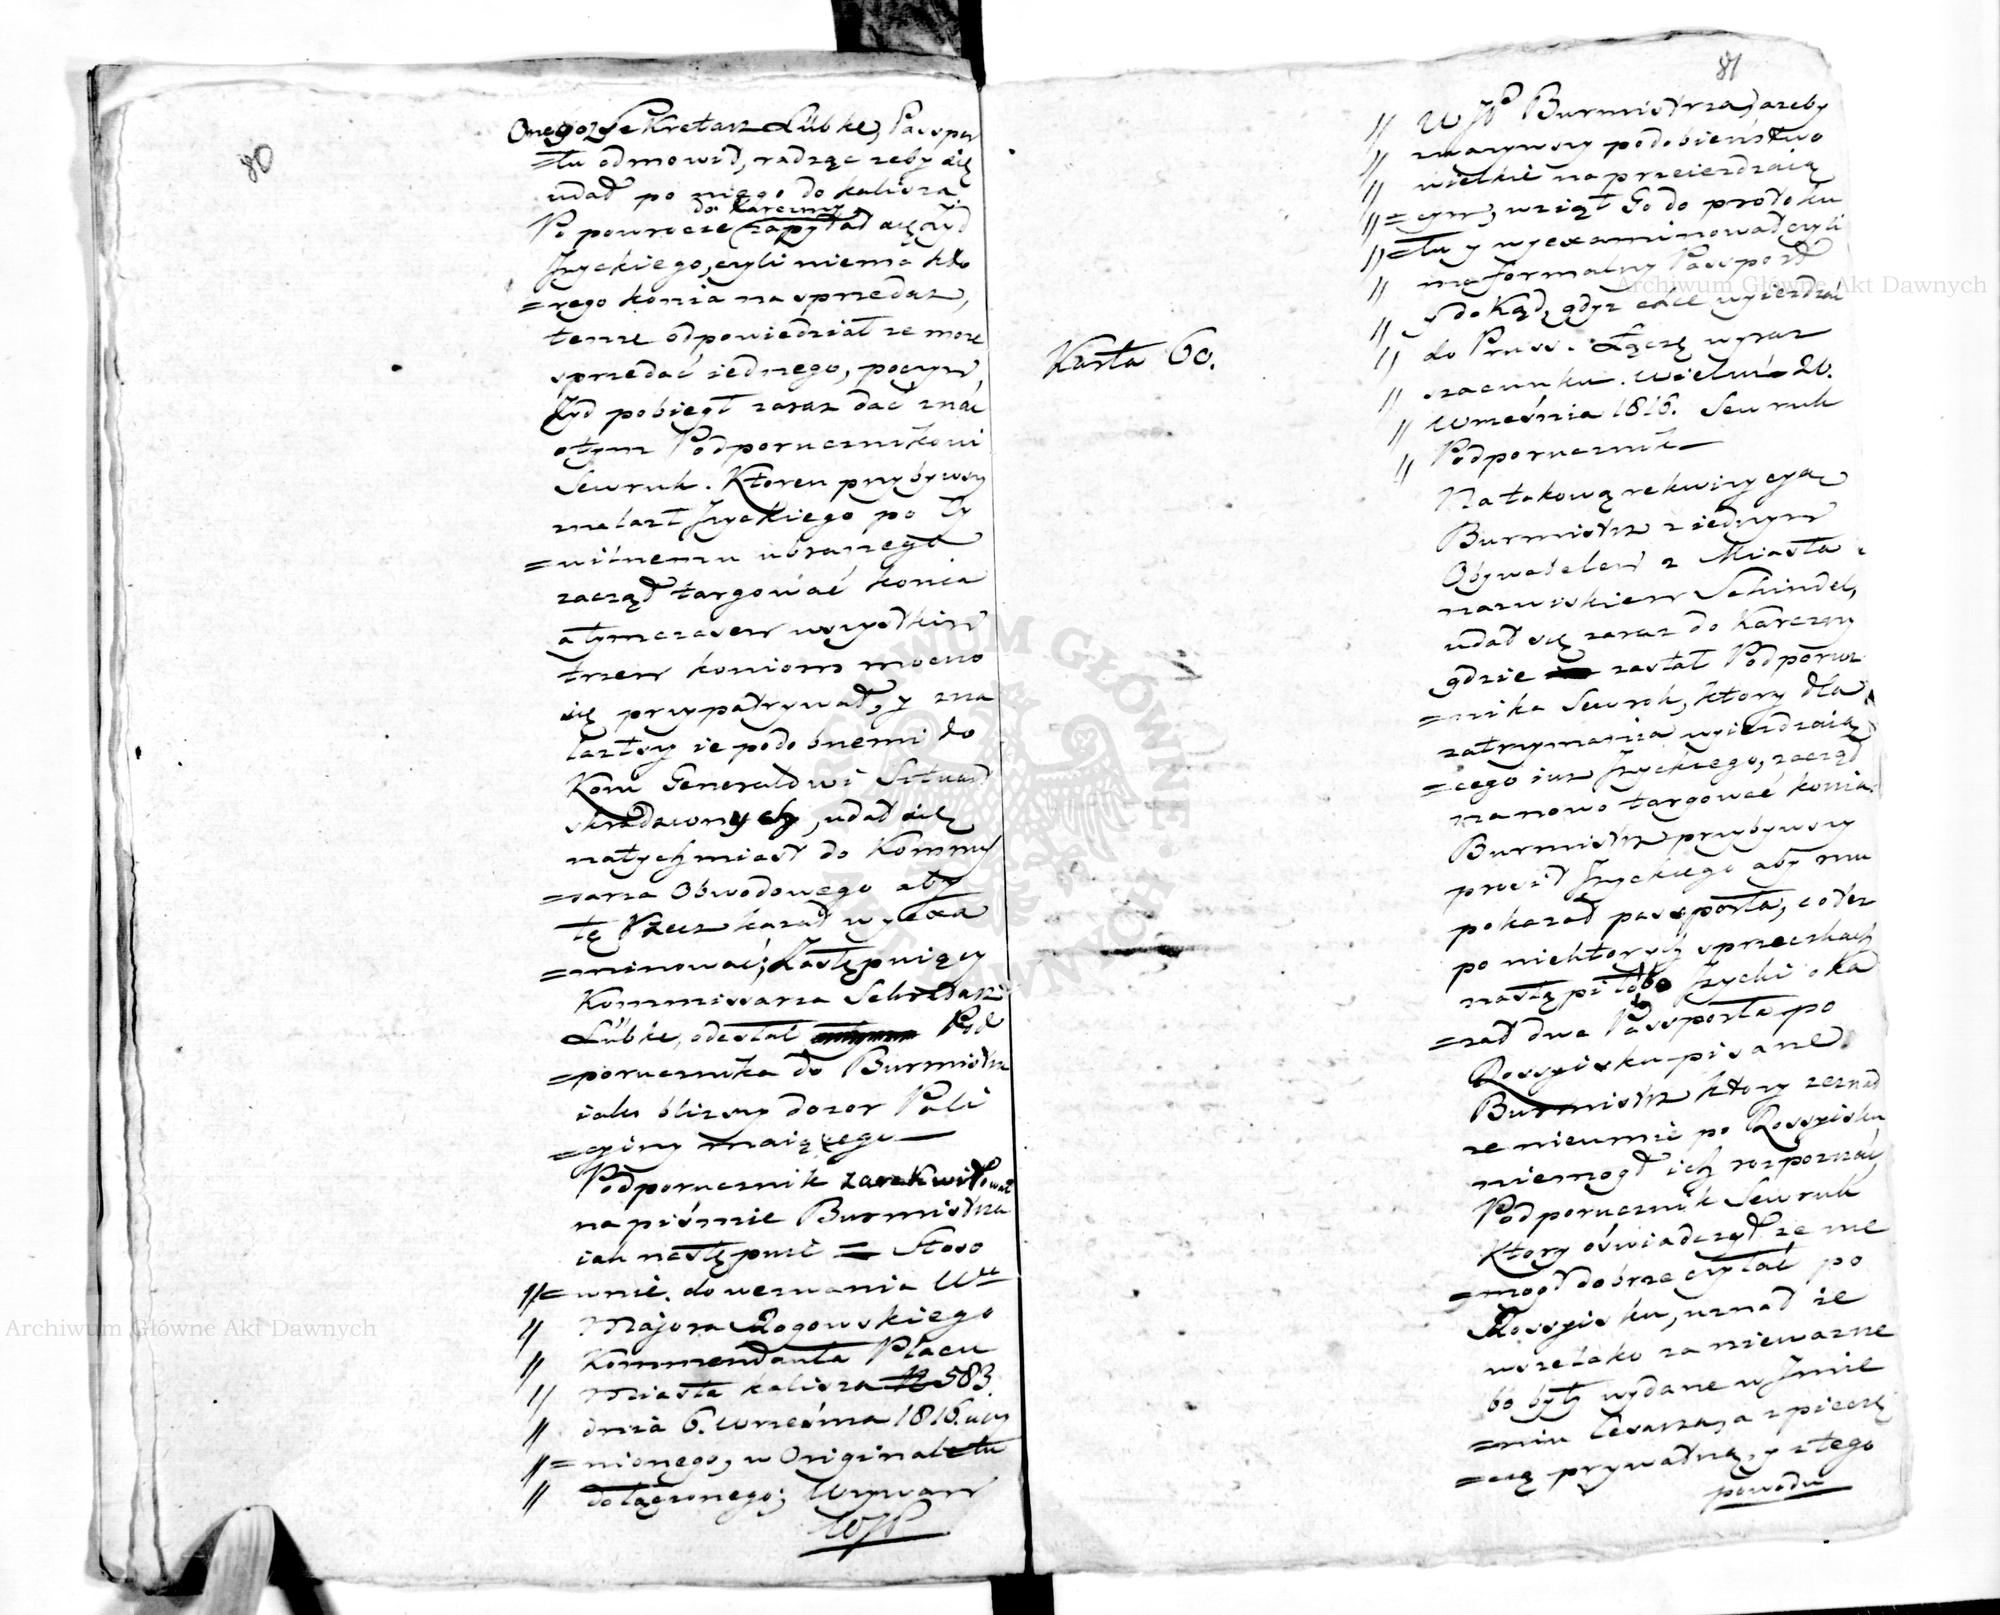 80
Onegoż Sekretarz Lübke, Passpor
=tu odmowił, radząc żeby się
udał po niego do Kalisza
do karczmy
Po powrocie zapytał się Żyd
Jzyckiego, czyli niema któ
=rego konia na sprzedaż,
tenże odpowiedział że może
sprzedać iednego, poczym
Żyd pobiegł zaraz dać znać
otym Podporucznikowi
Sewruk. Ktoren przybywszy
znalazł Jzyckiego po Cy
=wilnemu ubranego
zaczął targować konia
a tymczasem wszystkim
trzem koniom mocno
się przypatrywał, y zna
lazłszy ie podobnemi do
Koni Generałowi
skradzionych, udał się
natychmiast do Kommis
=sarza Obwodowego aby
tę Rzecz kazał wyexa
=minować; Zastępuiący
Kommissarza Sekretarz
Lübke, odesłał Pod
=porucznika do Burmistrza
iako bliższy dozor Poli
=cyiny maiącego
Podporucznik zarekwirował
na piśmie Burmistrza
iak następuie = Stoso
// = wnie do wezwania Wo
// Majora Rogowskiego
// Kommendanta Placu
// Miasta Kalisza N 583.
// dnia 6. Września 1816. uczy
// = nionego, w Originale tu
// dołączonego; Wzywam
WJP
81
Karta 60.
// WJP Burmistrza, ażeby
// zważywszy podobieństwo
// wielkie na przeieżdzaią
// = cym, wziął Go do protoku
// = łu y wyexaminował czyli
// ma formalny Passport
// y dokąd, gdyż chce wyieżdżać
// do Pruss. Łączę wyraz
// szacunku. Wieluń 20.
// Września 1816. Sewruk
// Podporucznik
Na takową rekwizycyą
Burmistrz z iednym
Obywatelem z Miasta
nazwiskiem Schindel,
udał się zaraz do Karczmy
gdzie zastał Podporucz
=nika Sewruk, ktory dla
zatrzymania wyieżdzaią
=cego iuż Jzyckiego, zaczął
na nowo targować konia.
Burmistrz przybywszy
prosił Jzyckiego aby mu
pokazał passporta, co też
po niektorych sprzeczkach
nastąpiło bo Jzycki oka
=zał dwa Passporta po
Rossyisku pisane
Burmistrz ktory zeznał
że nieumie po Rossyisku,
niemogł ich rozpoznać,
Podporucznik Sewruk
Ktory oświadczył że nie
=mogł dobrze czytać po
Rossyisku, uznał ie
wszelako za nieważne
bo były wydane w Jmie
=niu Cesarza, a z pieczę
=cią prywatną, y z tego
powodu
Archiwum Główne Akt Dawnych
Archiwum Główne Akt Dawnych
ARCHIWUM GŁÓWNE AKT DAWNYCH